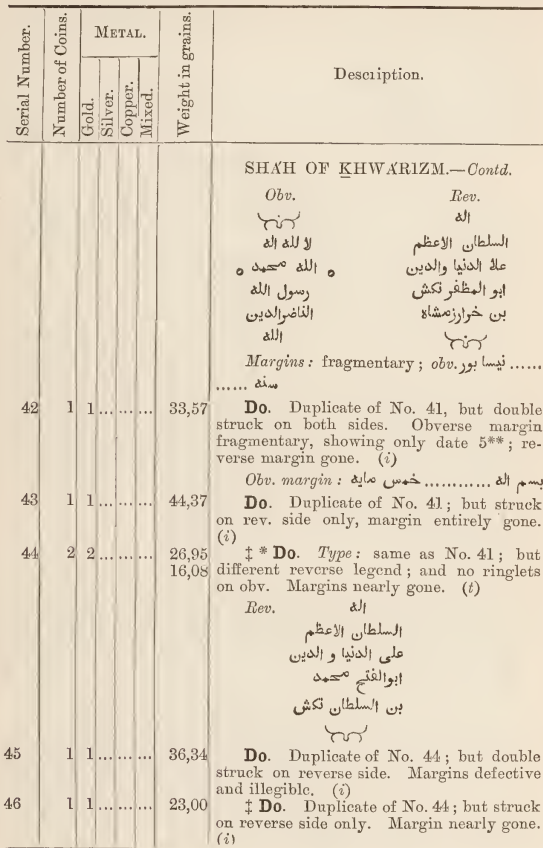 Serial Number.
Number of Coins.
METAL.
Gold.
Silver.
Copper.
Mixed.
Weight in grains.
Description.
SHÁH OF KHWÁRIZM.—Contd.
Obv. Rev.
اله
لا لله اله السلطان الاعظم
الله محمد علا الدنيا والدين
رسول الله ابو المظفر تكش
الناضرالدين بن خوارزمشاه
الله
Margins: fragmentary; obv. نيسا بور ......
...... سنة
42 1 1 ... ... ... 33,57 Do. Duplicate of No. 41, but double
struck on both sides. Obverse margin
fragmentary, showing only date 5**; re-
verse margin gone. (i)
Obv. margin: بسم اله ............ خمس مايه
43 1 1 ... ... ... 44,37 Do. Duplicate of No. 41; but struck
on rev. side only, margin entirely gone.
(i)
44 2 2 ... ... ... 26,95 ‡ * Do. Type: same as No. 41; but
16,08 different reverse legend; and no ringlets
on obv. Margins nearly gone. (t)
Rev. اله
السلطان الاعظم
على الدنيا و الدين
ابوالفتح محمد
بن السلطان تكش
45 1 1 ... ... ... 36,34 Do. Duplicate of No. 44; but double
struck on reverse side. Margins defective
and illegible. (i)
46 1 1 ... ... ... 23,00 ‡ Do. Duplicate of No. 44; but struck
on reverse side only. Margin nearly gone.
(i)